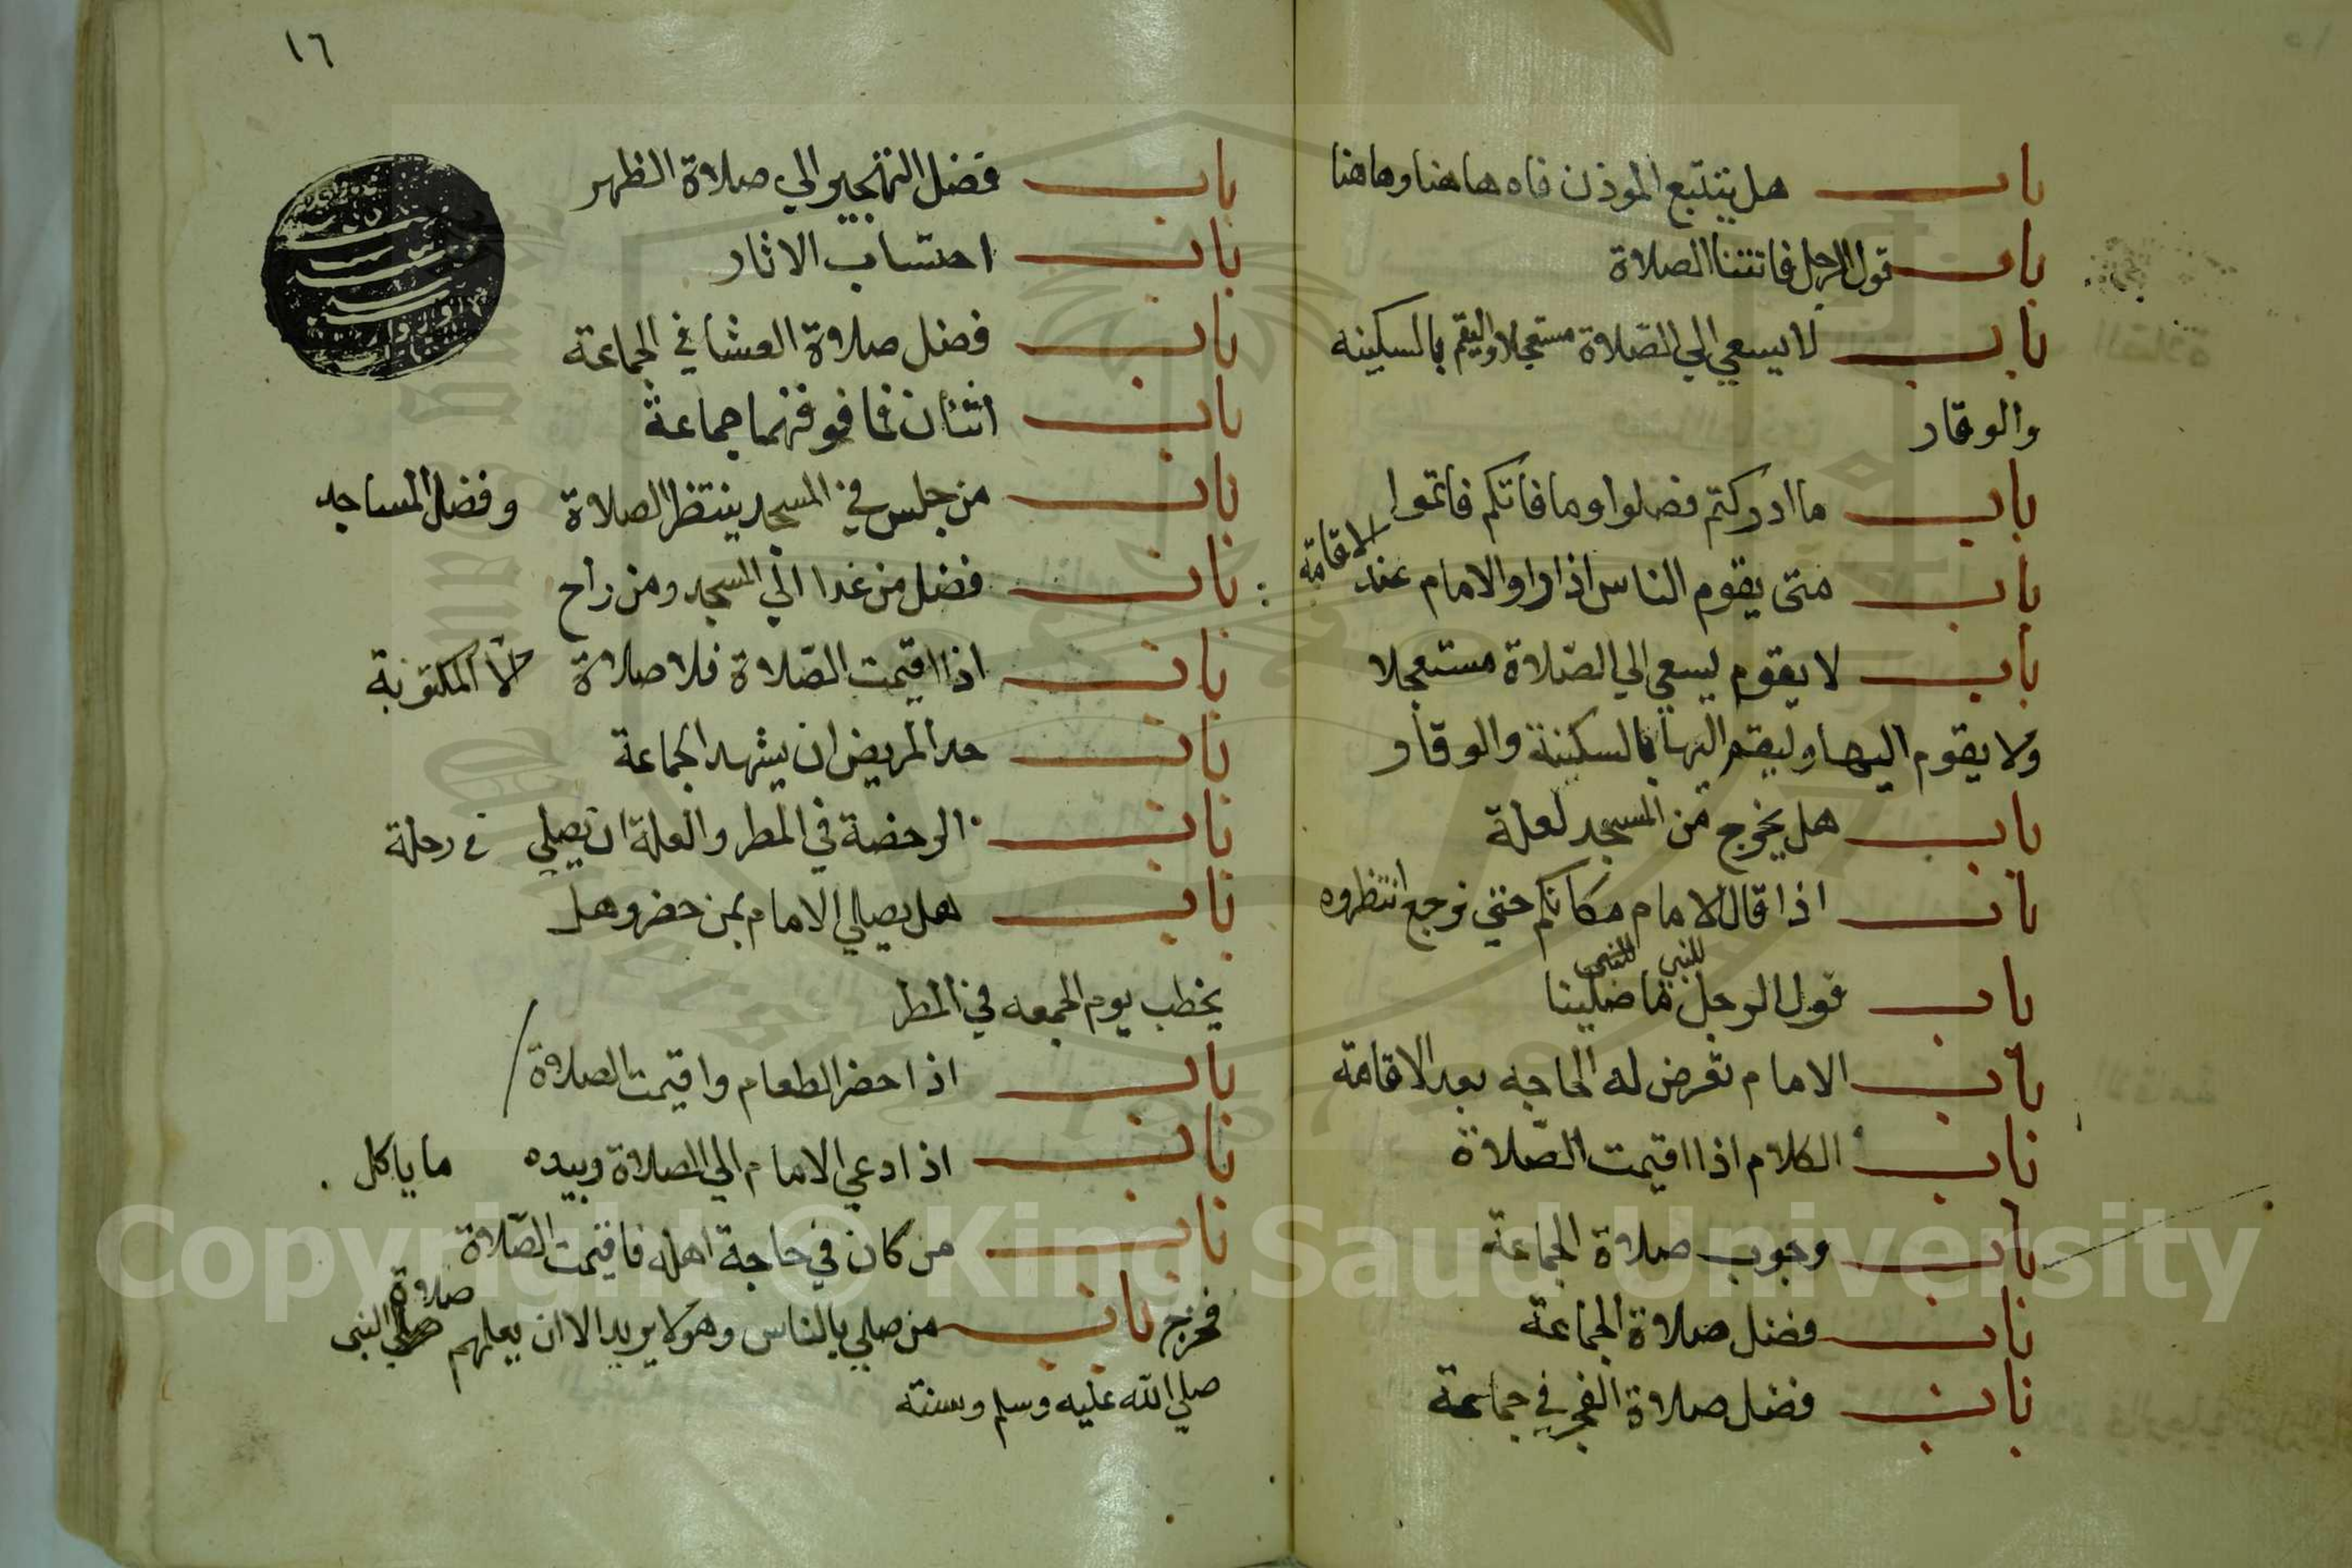 باب هل يتتبع الموذن فاه هاهنا وهاهنا
باب قول الرجل فاتتنا الصلاة
باب لا يسعي الي الصلاة مستعجلا وليقم بالسكينه
والوقار
باب ما ادركتم فصلوا وما فاتكم فاتموا
باب متى يقوم الناس اذا راو الامام عند الاقامة
باب لا يقوم يسعي الي الصلاة مستعجلا
ولا يقوم اليها وليقم اليها بالسكينة والوقار
باب هل يخرج من المسجد لعلة
باب اذا قال الامام مكانكم حتي نرجع انتظروه
باب قول الرجل للنبي ما صلينا
باب الامام تعرض له الحاجه بعد الاقامة
باب الكلام اذا اقيمت الصلاة
باب وجوب صلاة الجماعة
باب فضل صلاة الجماعة
باب فضل صلاة الفجر في جماعة
١٦
باب فضل التهجير الي صلاة الظهر
باب احتساب الاثار
باب فضل صلاة العشا في الجماعة
باب اثنان فما فوقهما جماعة
باب من جلس في المسجد ينتظر الصلاة وفضل المساجد
باب فضل من غدا الي المسجد ومن راح
باب اذا اقيمت الصلاة فلا صلاة الا المكتوبة
باب حد المريض ان يشهد الجماعة
باب الرخصة في المطر والعلة ان يصلي في رحله
باب هل يصلي الامام بمن حضر وهل
يخطب يوم الجمعه في المطر
باب اذا حضر الطعام واقيمت الصلاة
باب اذا دعي الامام الي الصلاة وبيده ما ياكل
باب من كان في حاجة اهله فاقيمت الصلاة
فخرج باب من صلي بالناس وهو لا يريد الا ان يعلمهم صلاة النبى
صلي الله عليه وسلم وسنته
Copyright © King Saud University